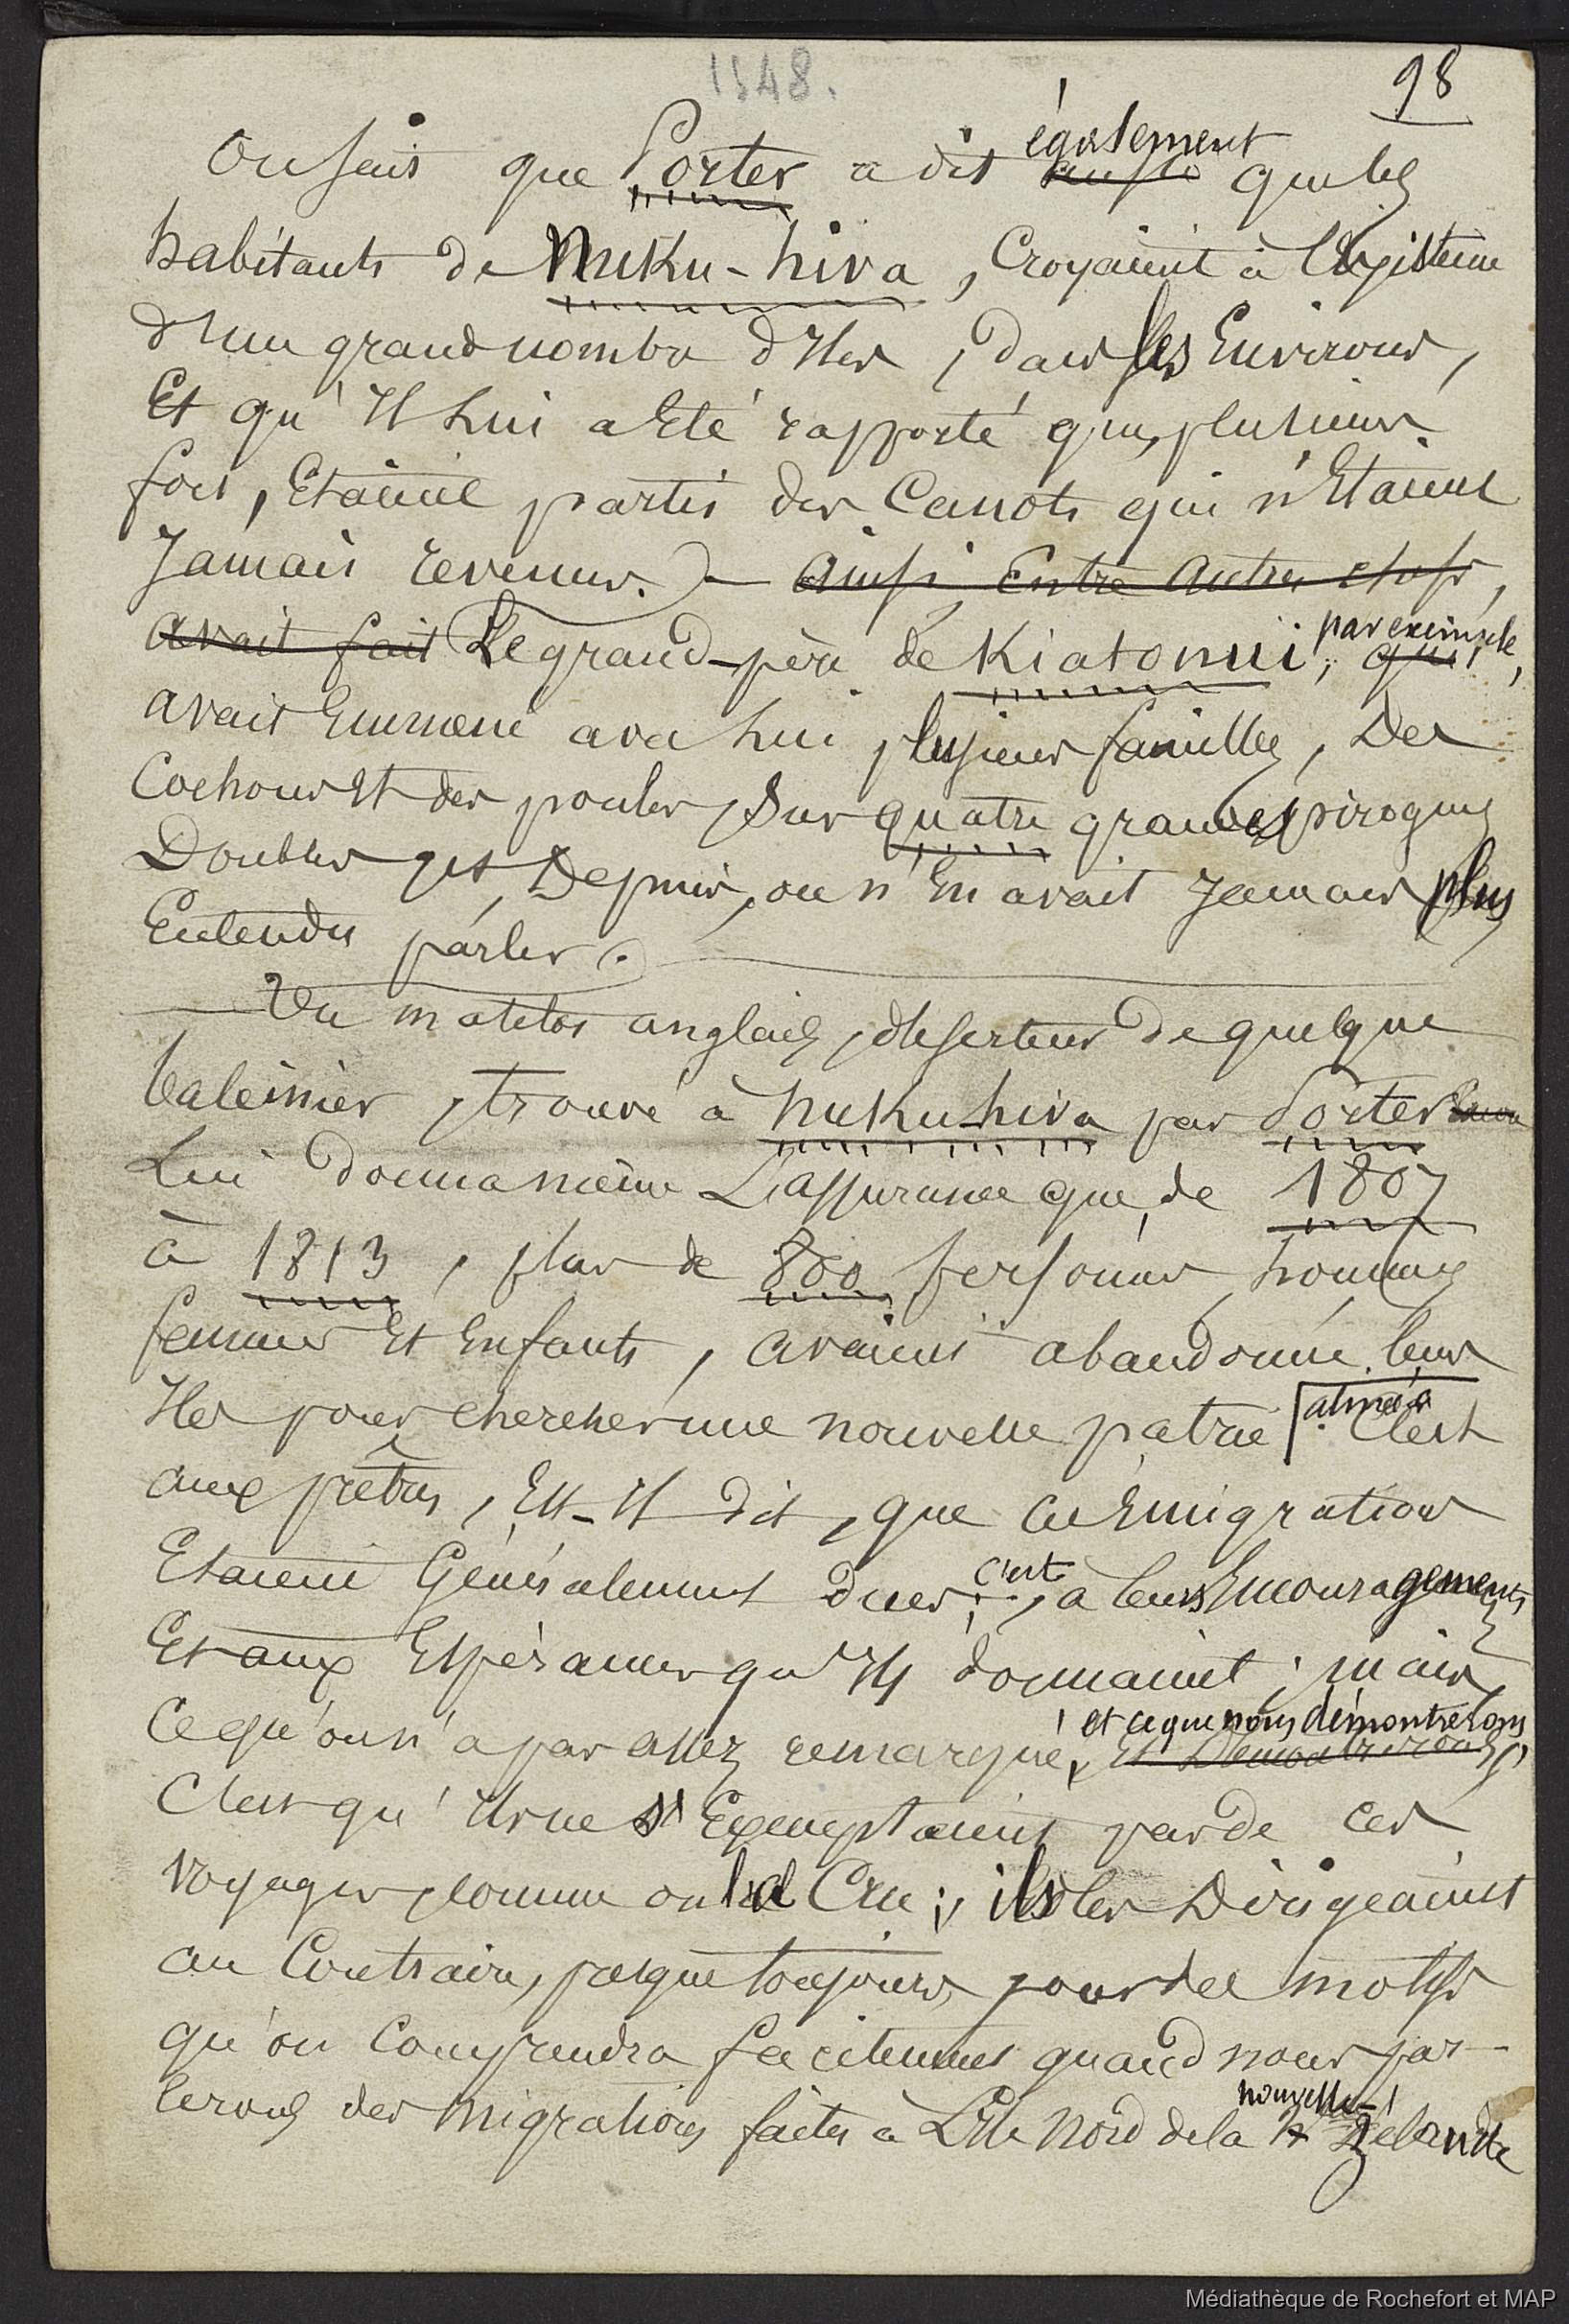 1548.
98
On sait que Porter a dit également aussi que les
habitants de Nuku-hiva, Croyaient à l'Existence
d'un grand nombre d'Iles, dans les Environs,
Et qu'Il Lui a Eté rapporté que, plusieurs
fois, Etaient partis des Canots qui n'Etaient
Jamais revenus. — ainsi Entre autres chefs,
avait fait Le grand-père de Kiatonui, par exemple, qui,
avait Emmené avec Lui plusieurs familles, Des
Cochons Et des poules, Sur quatre grandes pirogues
Doubles, Depuis, on n'En avait Jamais plus
Entendu parler.
— Un matelot anglais, déserteur de quelque
baleinier, trouvé à Nukuhiva par Porter
Lui donna même L'assurance que, de 1807
à 1813, plus de 800 personnes, hommes
femmes Et Enfants, avaient abandonné leurs
Iles pour chercher une nouvelle patrie alinéa C'est
aux prêtres, Est-Il dit, que ces Emigrations
Etaient Généralement dues; c'est, à leurs Encouragements
Et aux Espérances qu'Ils donnaient; mais,
Ce qu'on n'a pas assez remarqué, et ce que nous démontrerons Et Démontrerons,
C'est qu'Ils ne s'Exemptaient pas de ces
voyages, comme on l'a Cru; ils les Dirigeaient
au Contraire, presque toujours, pour des motifs
qu'on Comprendra facilement quand nous par-
lerons des migrations faites à L'Ile Nord de la nouvelle- N Zelande
Médiathèque de Rochefort et MAP